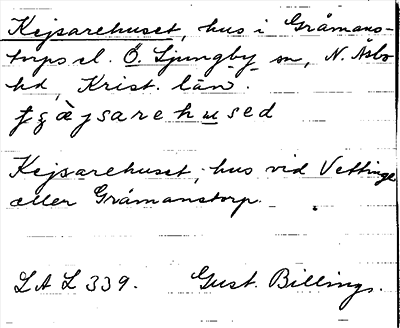 Kejsarehuset, hus i Gråmans-
torps el. Ö. Ljungby sn, N. Åsbo
hd, Krist. län.
Kejsarehuset, hus vid Vettinge
eller Gråmanstorp.
LAL 339. Gust. Billing.